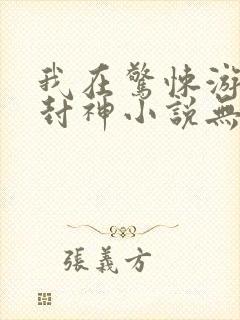 我在驚悚游
封神小說無
張義方